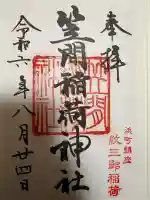 奉拝
笠間稲荷神社
令和六年八月廿四日
浜町鎮座
紋三郎稲荷